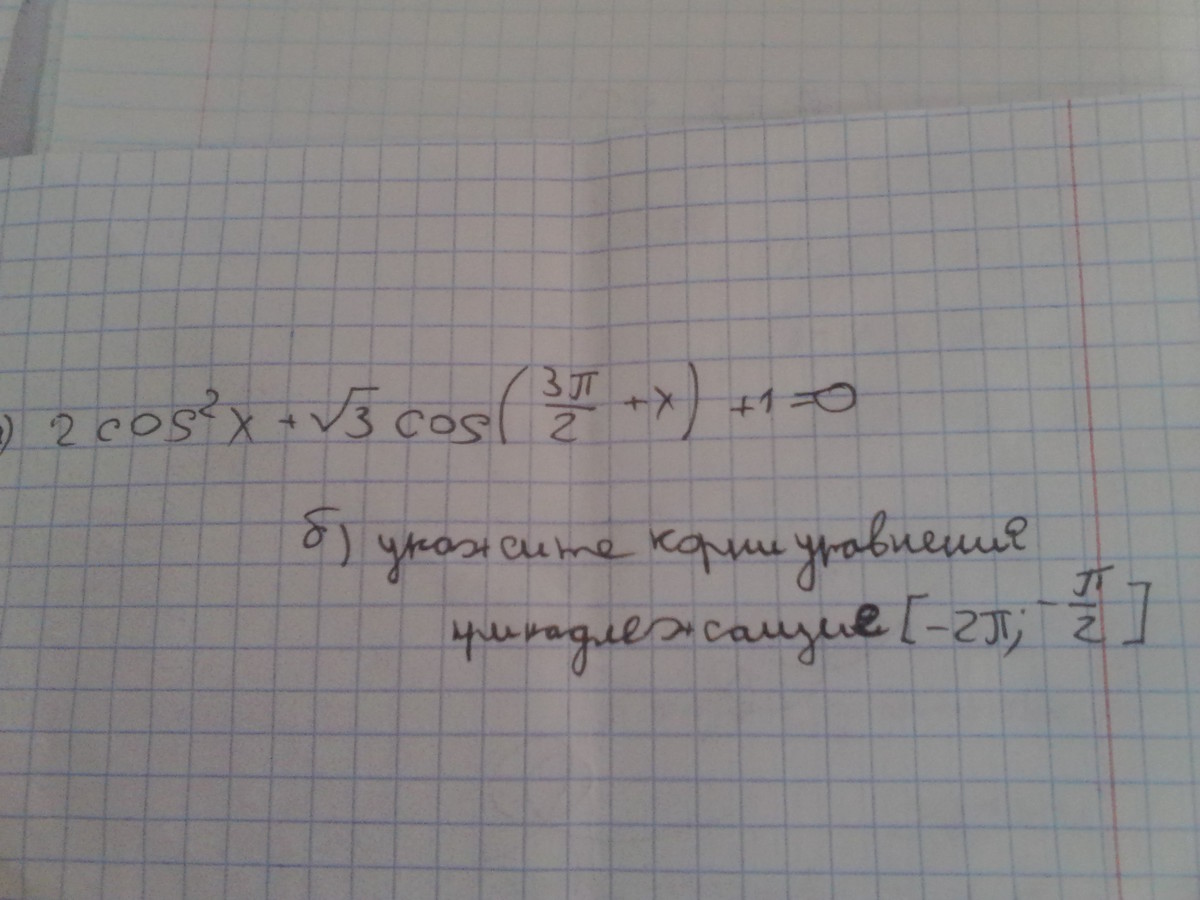 ) 2 cos²x + √3 cos(3π/2 + x) + 1 = 0
б) укажите корни уравнения
принадлежащие [-2π; -π/2]